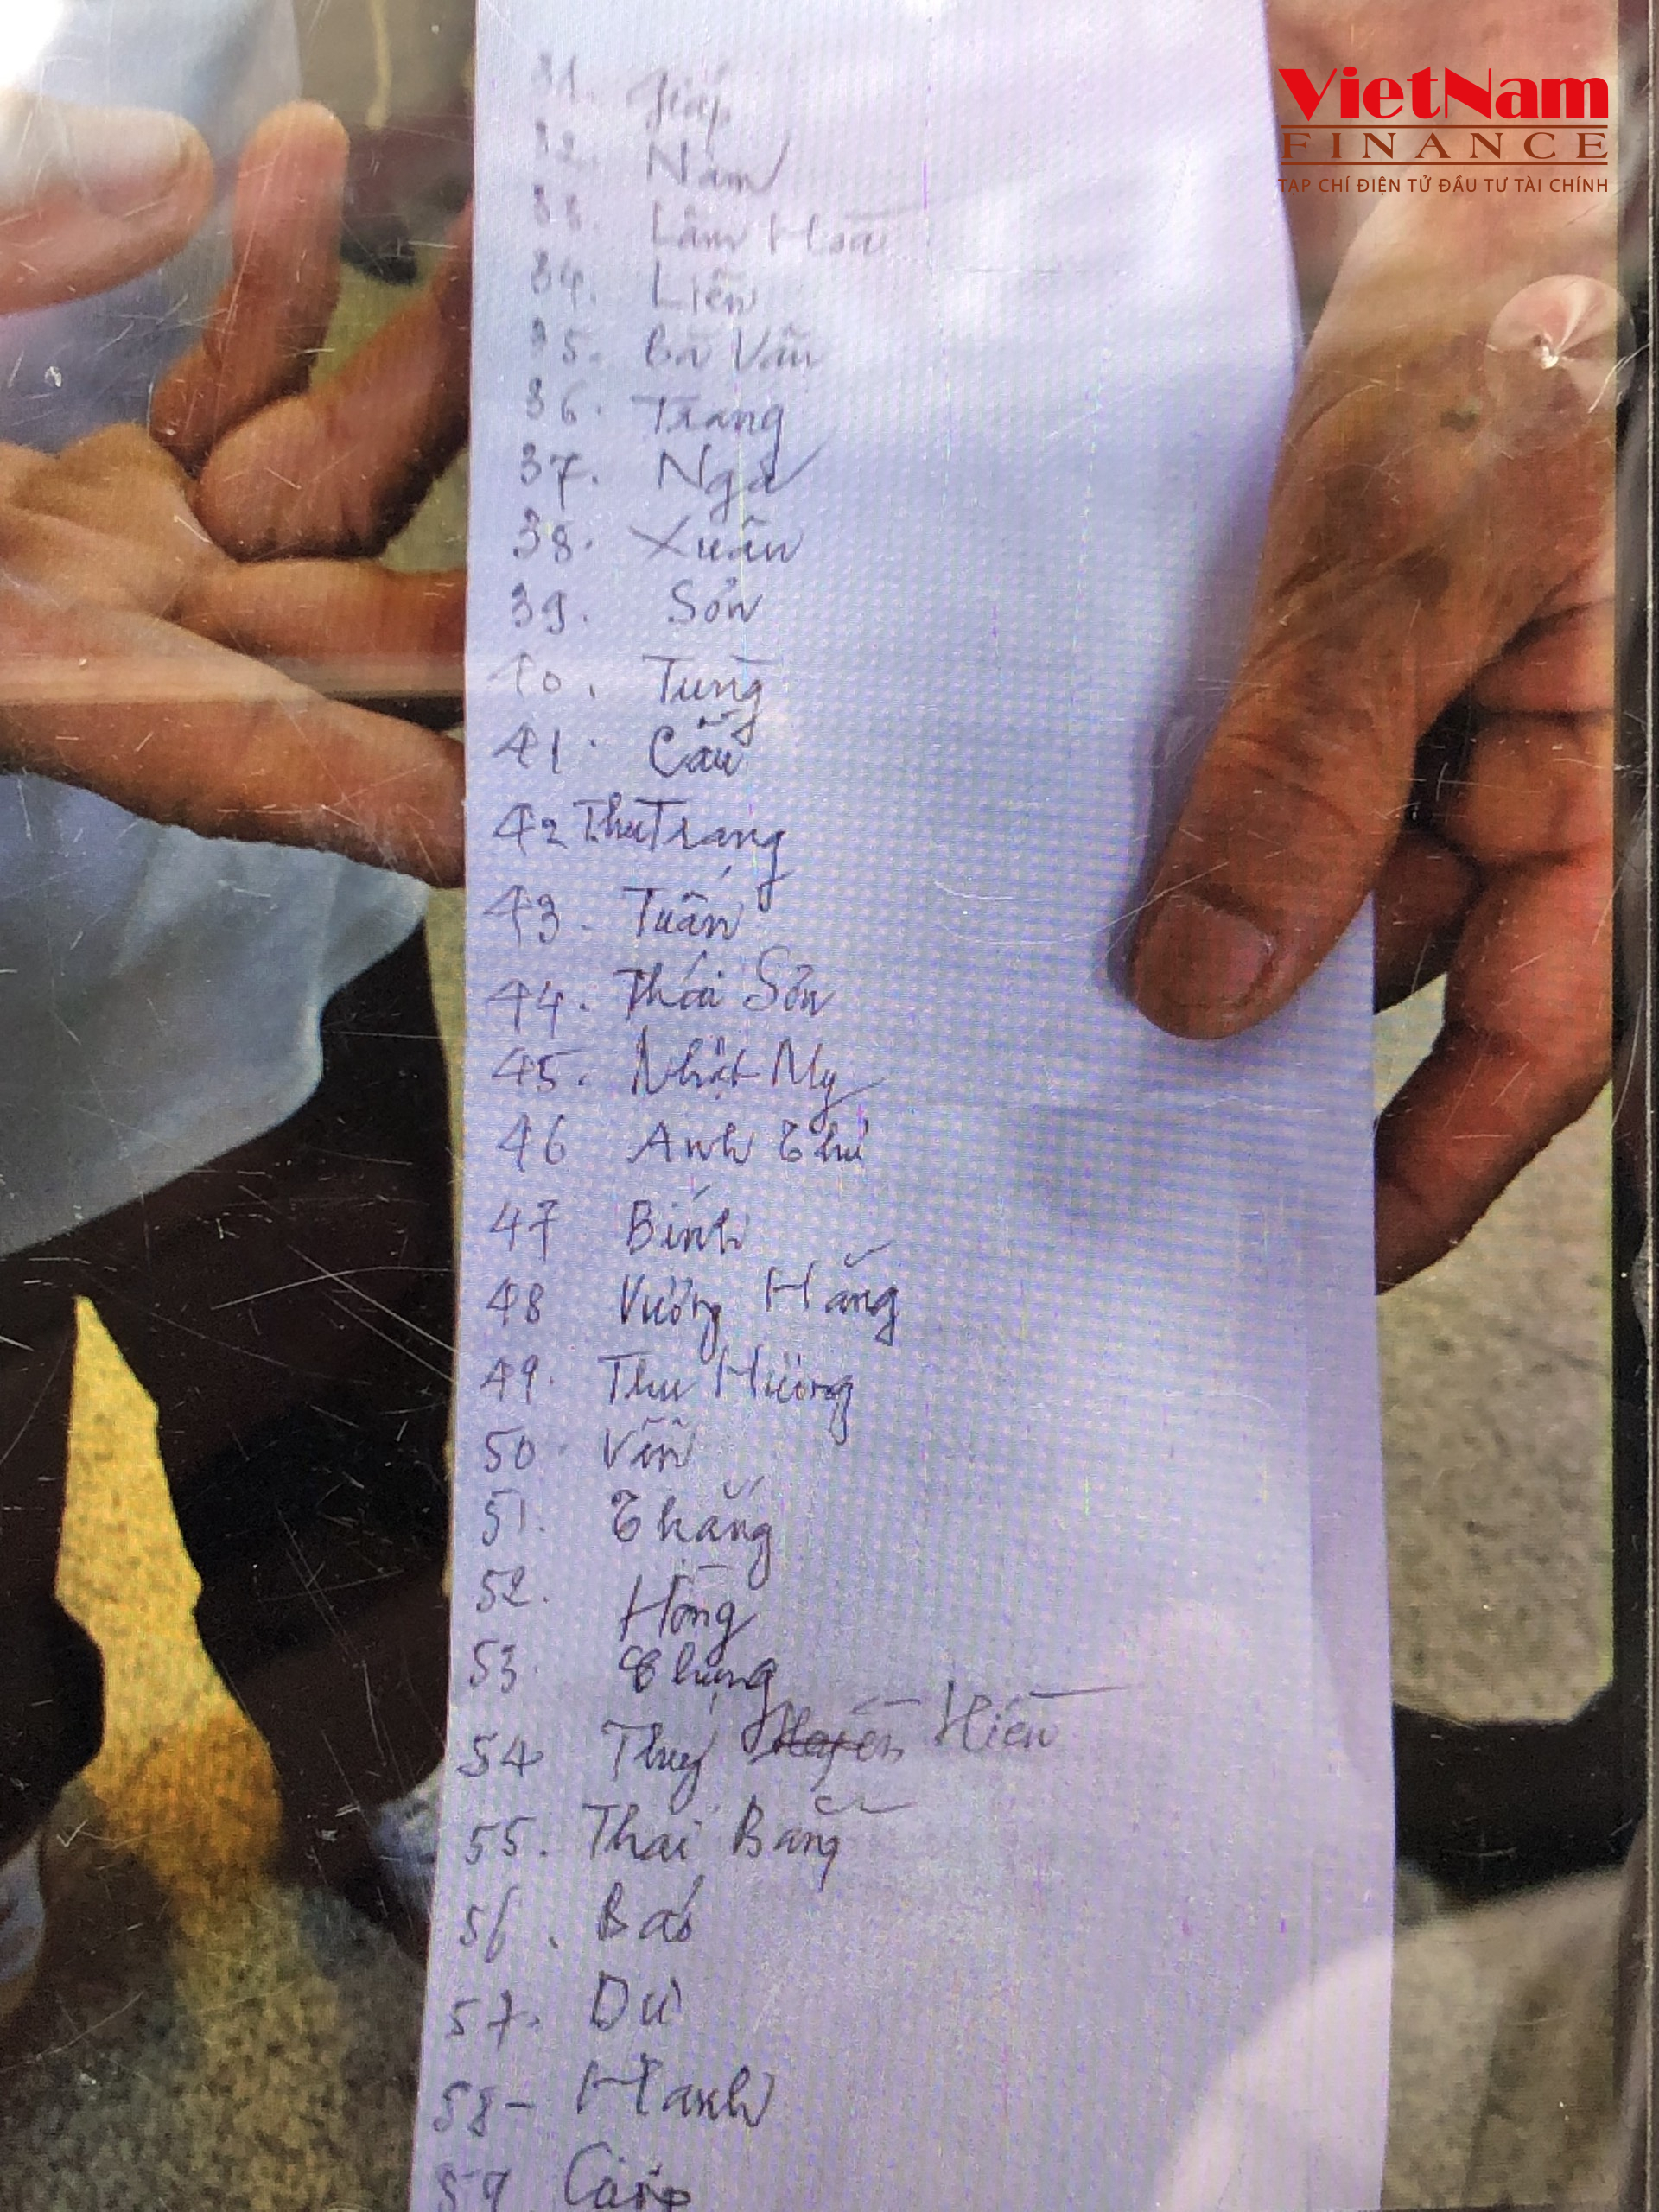 VietNam
FINANCE
TẠP CHÍ ĐIỆN TỬ ĐẦU TƯ TÀI CHÍNH
31. Giáp
32. Nam
33. Lâm Hoa
34. Liên
35. Bà Vân
36. Trang
37. Nga
38. Xuân
39. Sơn
40. Tùng
41.
42 Thu Trang
43. Tuấn
44. Thái Sơn
45. Nhật My
46 Anh Thư
47 Bính
48 Vương Hằng
49. Thu Hương
50.
51. Thắng
52. Hồng
53.
54 Thuý Hiền
55. Thái Bằng
56.
57.
58- Hạnh
59